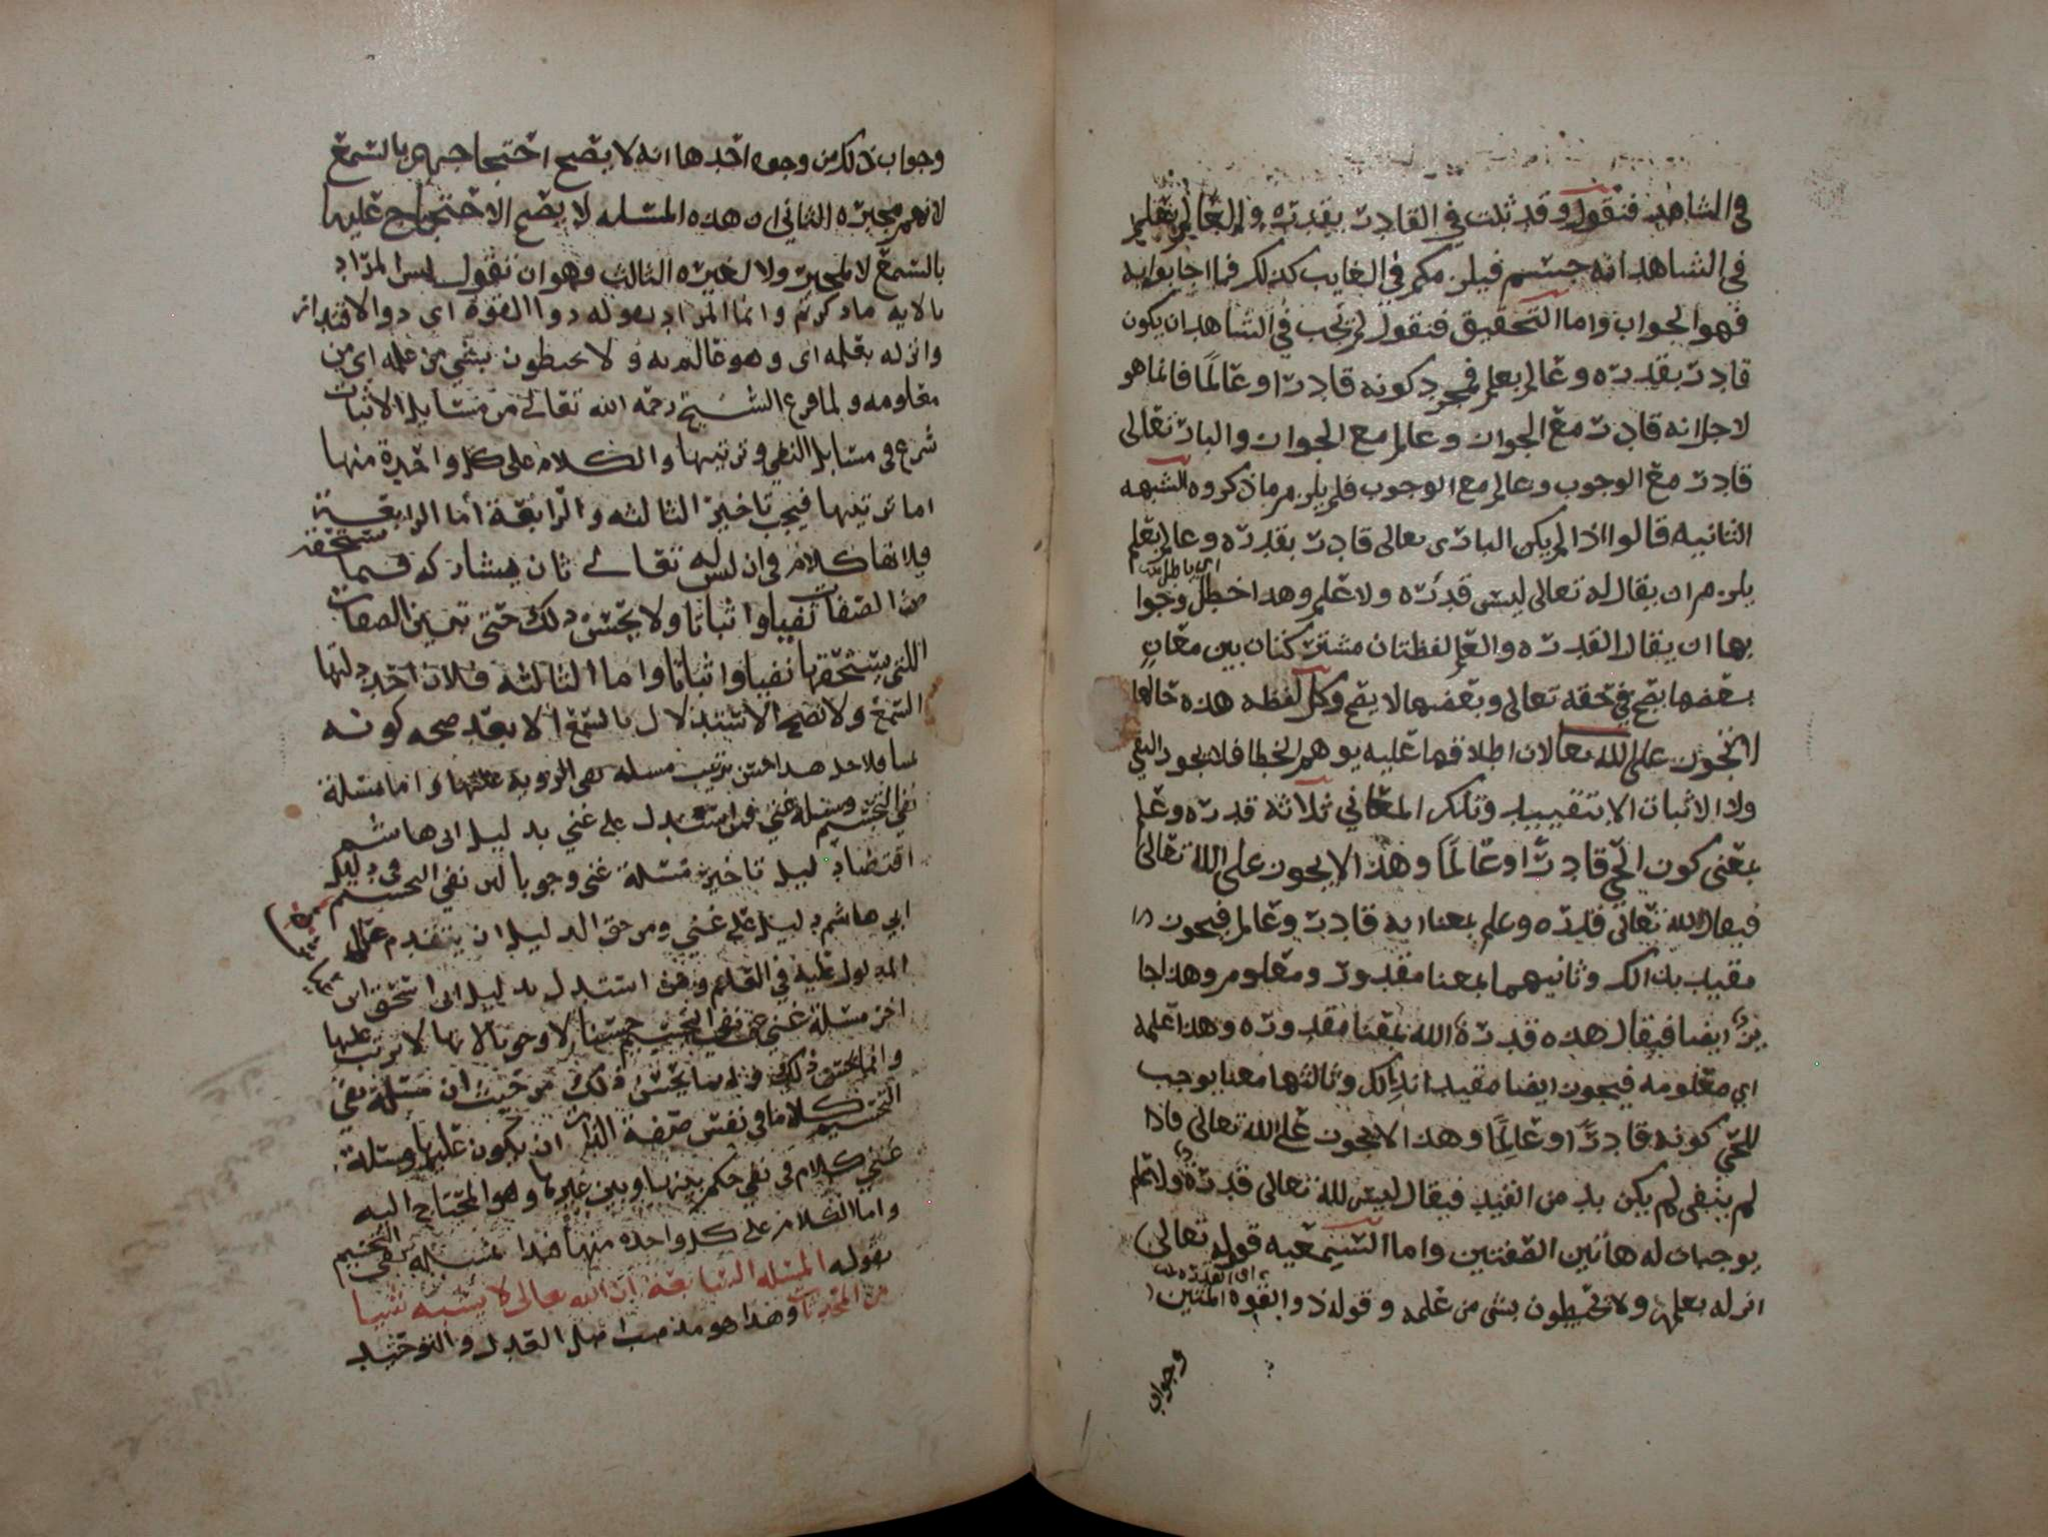 في الشاهد فنقول وقد ثبت في القادر بقدره والعالم بعلم
في الشاهد انه جسم فيلزمكم في الغايب كذلك فما اجابوا به
فهو الجواب واما التحقيق فنقول لم يجب في الشاهد ان يكون
قادر بقدره وعالم بعلم لمجرد كونه قادرا وعالمًا فانما هو
لاجل انه قادر مع الجواز وعالم مع الجواز والبار تعالى
قادر مع الوجوب وعالم مع الوجوب فلم يلزم ما ذكروه الشبهه
الثانيه قالوا اذا لم يكن الباري تعالى قادر بقدره وعالم بعلم
يلزم ان يقال له تعالى ليس قدره ولا علم وهذا خطل وجوا
بها ان يقال القدره والعلم لفظتان مشتركتان بين معانٍ
بعضها يصح في حقه تعالى وبعضها لا يصح وكل لفظه هذه حالها
لا تجوز على الله تعالى لان اطلاقها عليه يوهم الخطا فلا يجوز النفي
ولا الاثبات الا بتقييد وتلك المعاني ثلاثه قدره وعلم
بمعنى كون الحي قادرًا وعالمًا وهذا لا يجوز على الله تعالى
فيقال لله تعالى قدره وعلم بمعنا انه قادر وعالم فيجوز
مقيد بذالك وثانيهما بمعنا مقدور ومعلوم وهذا جا
يز ايضا فيقال هذه قدرة الله بمعنا مقدوره وهذا علمه
اي معلومه فيجوز ايضا مقيدا بذالك وثالثها معنا يوجب
للحي كونه قادرًا وعالِمًا وهذا لا يجوز على الله تعالى فاذا
لم ينفى لم يكن بد من القيد فيقال ليس لله تعالى قدرة ولا علم
يوجبان له هاتين الصفتين واما السمعيه قوله تعالى
انزله بعلمه ولا يحيطون بشي من علمه وقوله ذو القوه المتين
وجواب
وجواب ذلك من وجوه احدها انه لا يصح احتجاجهم بالسمع
لانهم مجبره الثاني ان هذه المسئله لا يصح الاحتجاج عليها
بالسمع لا لمجبر ولا لغيره الثالث وهو ان نقول ليس المراد
بالايه ما ذكرتم وانما المراد بقوله ذوا القوة اي ذو الاقتدار
وانزله بعلمه اي وهو عالم به ولا يحيطون بشي من علمه اي من
معلومه ولما فرغ الشيخ رحمه الله تعالى من مسايل الاثبات
شرع في مسايل النفي وترتيبها والكلام على كل واحدة منها
اما ترتيبها فيجب تاخير الثالثه والرابعة أما الرابعة
فلانها كلام في ان ليس له تعالى ثان يشاركه فيما يستحقه
من الصفات نفيا واثباتا ولا يحسن ذلك حتى تبين الصفات
اللتي يستحقها نفيا واثباتا واما الثالثه فلان احد دلتها
السمع ولا يصح الاستدلال بالسمع الا بعد صحه كونه
نفي التجسيم ومسئلة غني فمن استدل على غني بدليل ابي هاشم
اقتضا دليله تاخير مسئلة غني وجوبا لان نفي التجسيم في دليل
ابي هاشم دليل على غني ومن حق الدليل ان يتقدم على
المدلول عليه في العلم ومن استدل بدليل ابي اسحق ان
اخر مسئلة غني عن نفي التجسيم حسنا لا وجوبا لانها لا ترتب عليها
وانما يحسن ذلك من حيث ان مسئلة نفي
التجسيم كلاما في نفس صفة الذات ان يكون عليها ومسئلة
غني كلام في نفي حكم بينها وبين غيرها وهو المحتاج اليه
واما الكلام على كل واحده منها فبدا بمسئلة نفي التجسيم
بقوله المسئله السابعة ان الله تعالى لا يشبه شيا
من المحدثات وهذا هو مذهب اهل العدل والتوحيد